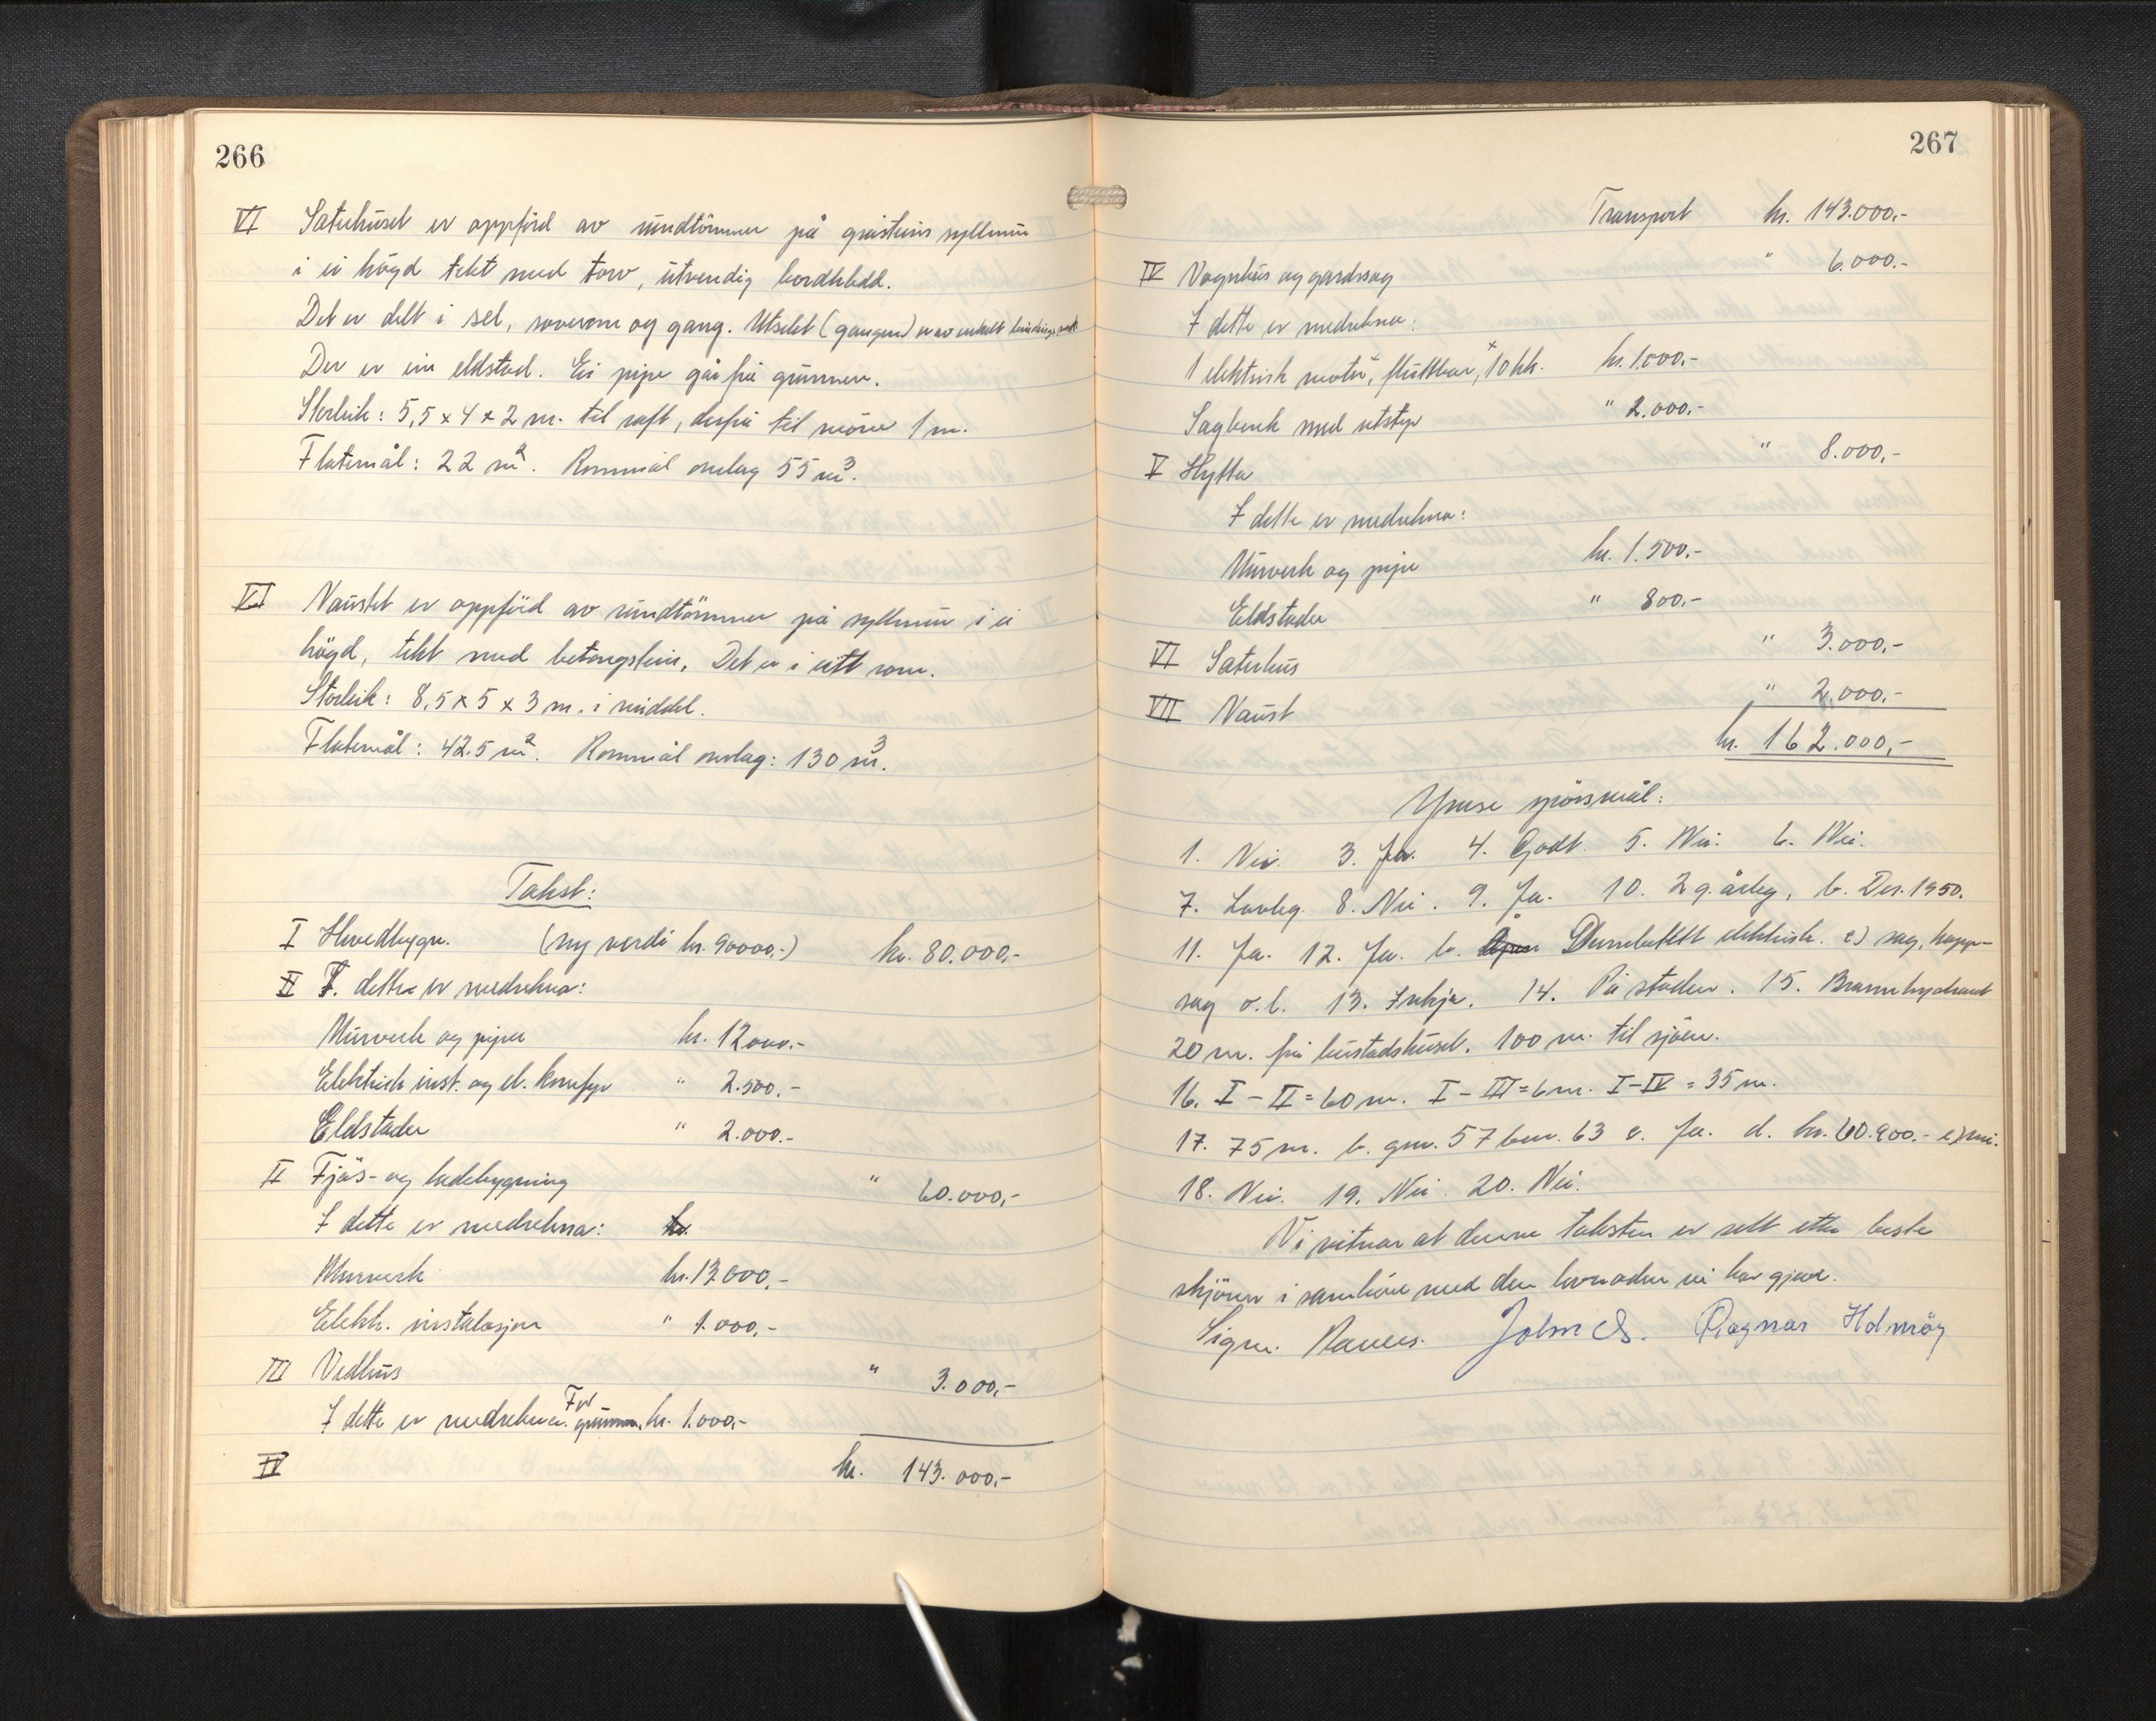 266
VI Sæterhuset er oppförd av rundtömmer på gråsteins syllmur
i ei högd tekt med torv, utvendig bordkledd.
Det er delt i sel, soverom og gang. Utselet (gangen) er av enkelt
Der er ein eldstad. Ei pipe går frå grunnen.
Storleik: 5,5 x 4 x 2 m. til raft, derfrå til möne 1 m.
Flatemål: 22 m². Rommål omlag 55 m³.
VII Naustet er oppförd av rundtömmer på syllmur i ei
högd, tekt med betongstein. Det er i eitt rom.
Storleik: 8,5 x 5 x 3 m. i middel.
Flatemål: 42.5 m². Rommål omlag: 130 m³.
Takst:
I Hovedbygn. (ny verdi kr. 90000.-) kr. 80.000,-
II I. dette er medrekna:
Murverk og piper kr. 12000.-
Elektrisk inst. og el. komfyr " 2.500.-
Eldstader " 2.000.-
II Fjös- og ladebygning " 60.000,-
I dette er medrekna: kr.
Murverk kr. 13.000,-
Elektr. instalasjon " 1.000,-
III Vedhus " 3.000,-
I dette er medrekna. For grunnen. kr. 1.000,-
IV kr. 143.000,-
267
Transport kr. 143.000,-
IV Vognhus og gardssag " 6.000.-
I dette er medrekna:
1 elektrisk motor, flyttbar, 10 hk. kr. 1.000.-
Sagbenk med utstyr " 2.000.-
V Hytta " 8.000,-
I dette er medrekna:
Murverk og pipe kr. 1.500.-
Eldstader " 800.-
VI Sæterhus " 3.000,-
VII Naust " 2.000,-
kr. 162.000,-
Ymse spörsmål:
1. Nei. 3. Ja. 4. Godt. 5. Nei. 6. Nei.
7. Lovleg. 8. Nei. 9. Ja. 10. 2 g. årleg, b. Des. 1950.
11. Ja. 12. Ja. b. elektrisk. c) sag, kapp-
sag o.l. 13. Inkje. 14. På staden. 15. Brannhydrant
20 m. frå bustadshuset. 100 m. til sjöen.
16. I - II = 60 m. I - III = 6 m. I - IV = 35 m.
17. 75 m. b. gnr. 57 bnr. 63 c. Ja. d. kr. 60.900.- e) nei.
18. Nei. 19. Nei. 20. Nei.
Vi vitnar at denne taksten er sett etter beste
skjönn i samhöve med den lovnaden vi har gjeve.
Sign. Ragnar Holmöy